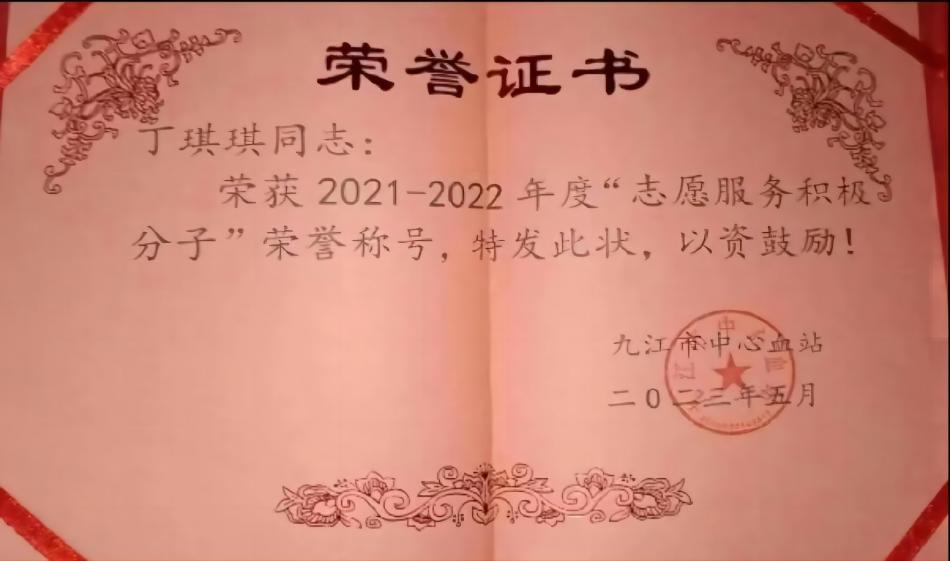 荣誉证书
丁琪琪同志：
荣获2021-2022年度“志愿服务积极
分子”荣誉称号，特发此状，以资鼓励！
九江市中心血站
二0二三年五月